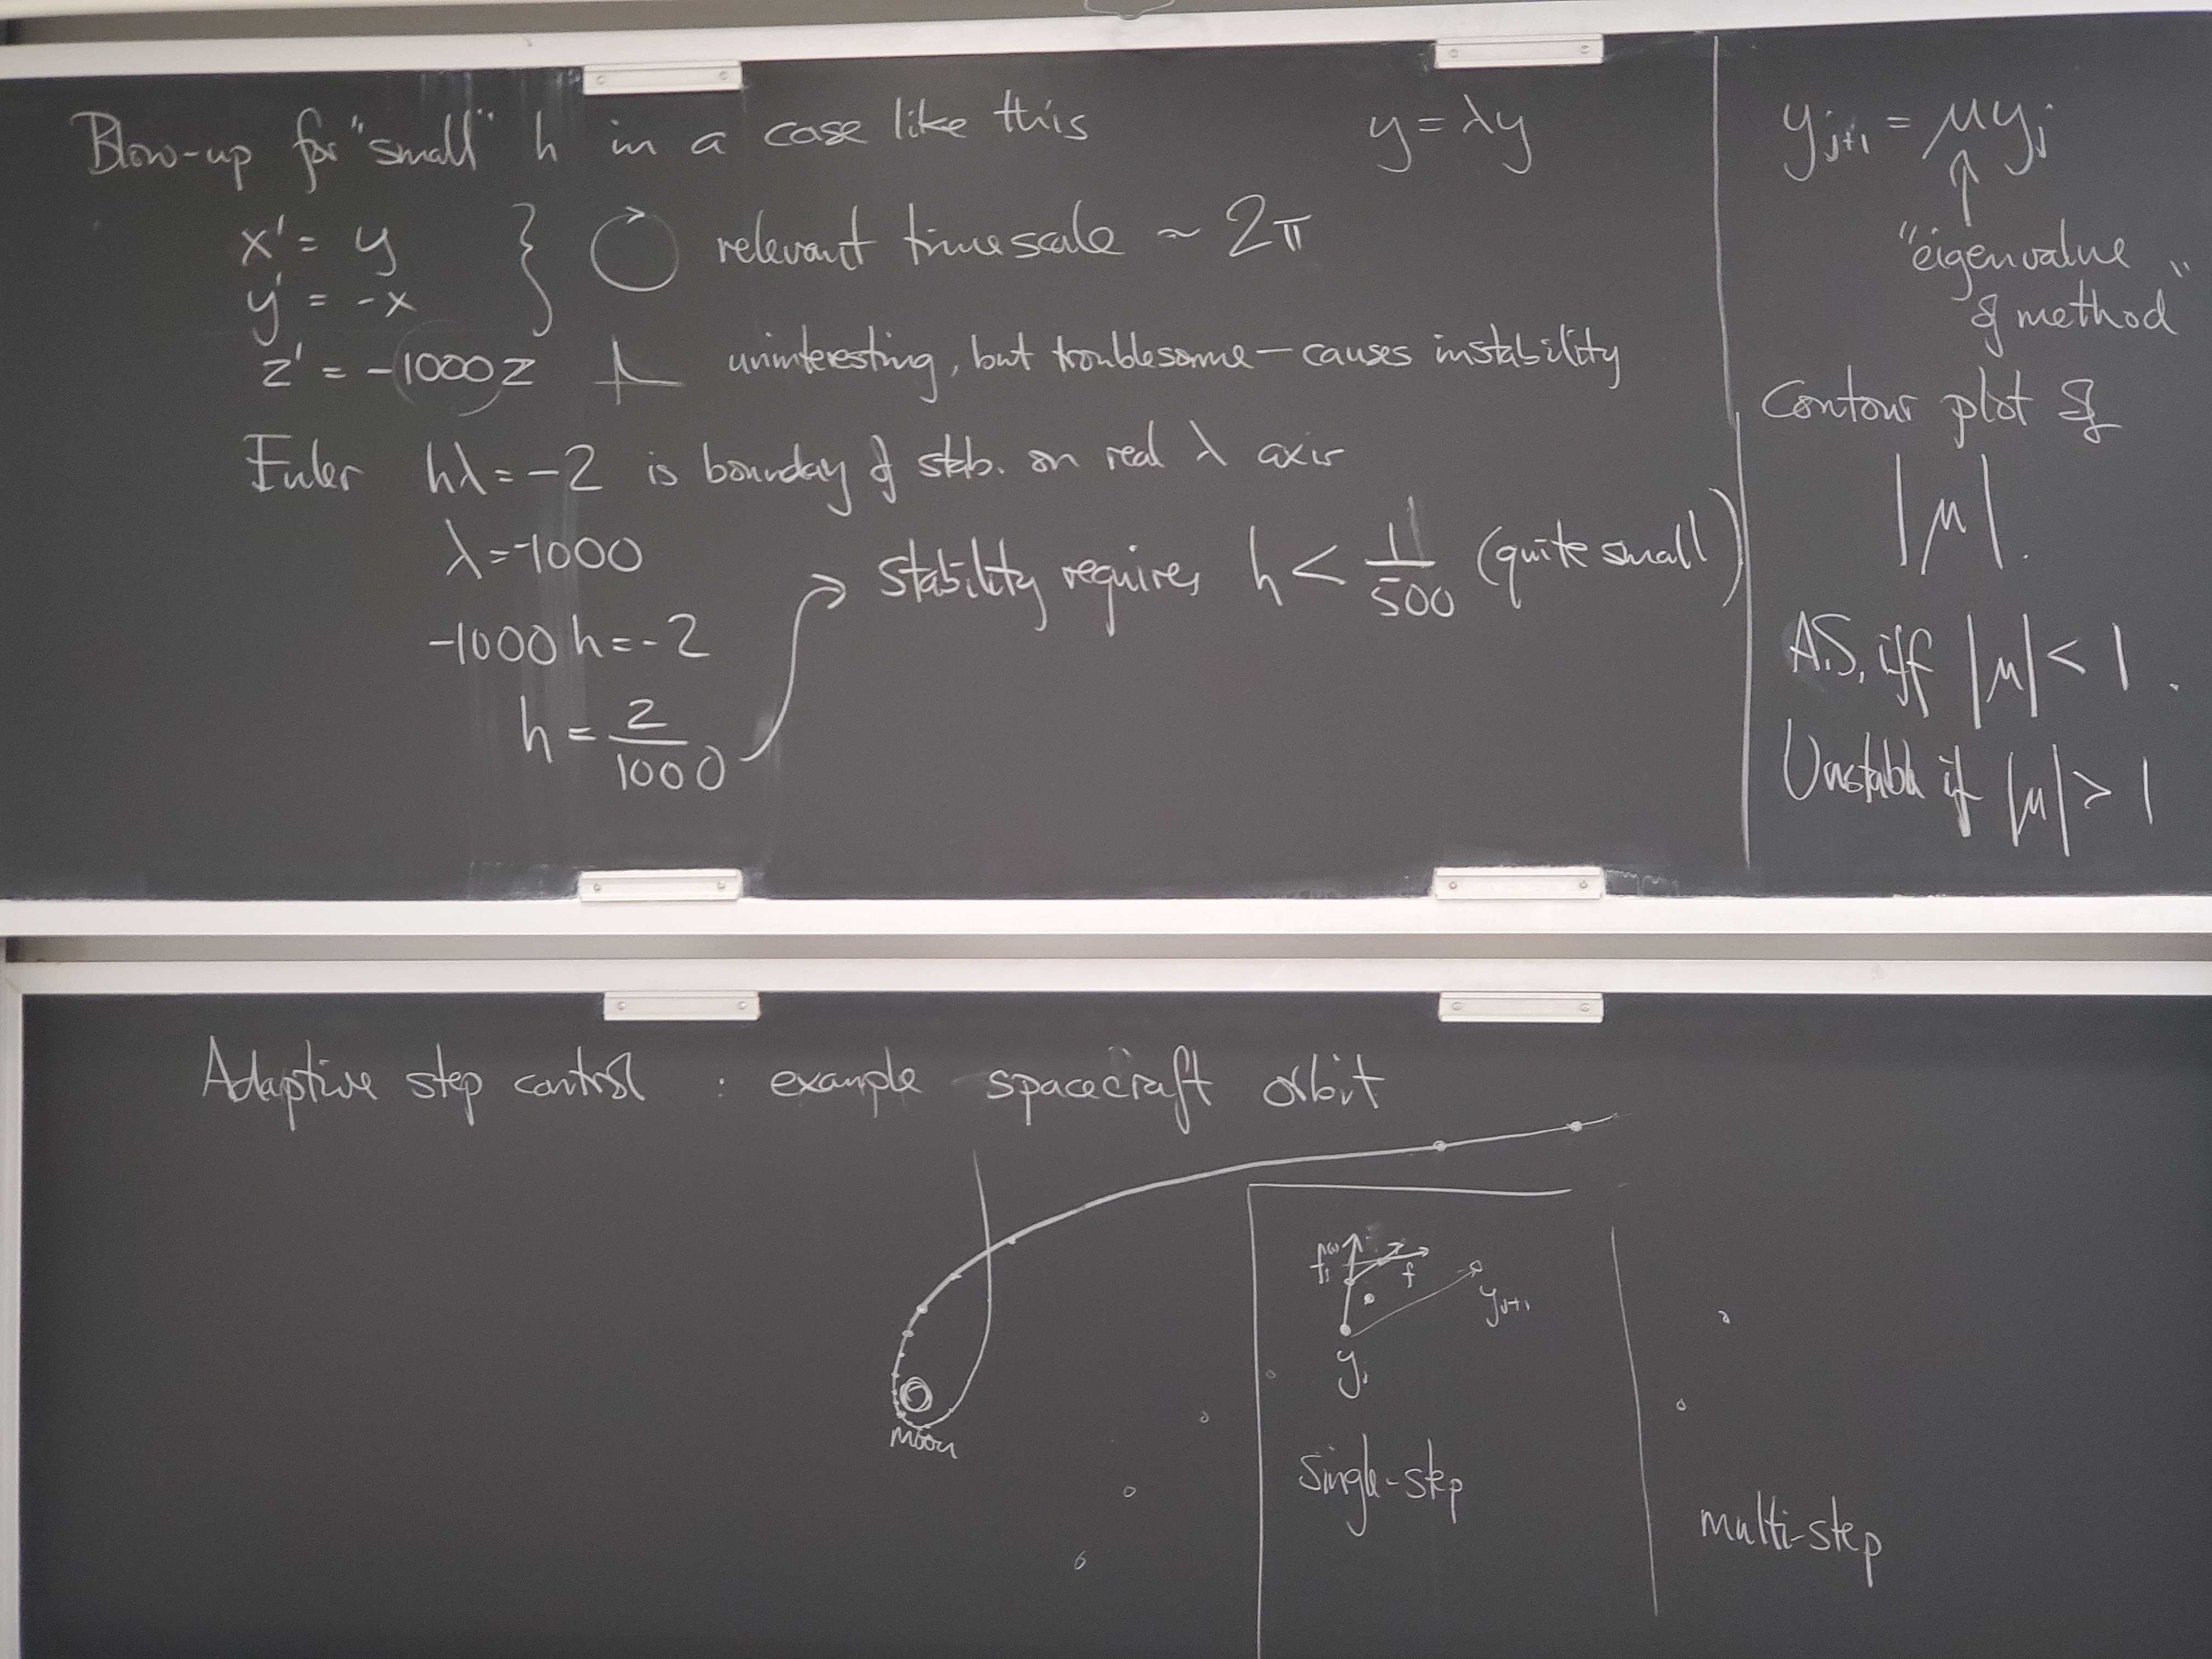 Blow-up for "small" h in a case like this
y = λy
x' = y
y' = -x
relevant timescale ~ 2π
z' = -1000z
uninteresting, but troublesome — causes instability
Euler hλ = -2 is boundary of stab. on real λ axis
λ = -1000
-1000h = -2
h = 2/1000
stability requires h < 1/500 (quite small)
y_{j+1} = μy_j
"eigenvalue
of method"
Contour plot of
|μ|.
A.S. iff |μ| < 1.
Unstable if |μ| > 1
Adaptive step control : example spacecraft orbit
Moon
f
y_{j+1}
y_j
Single-step
multi-step